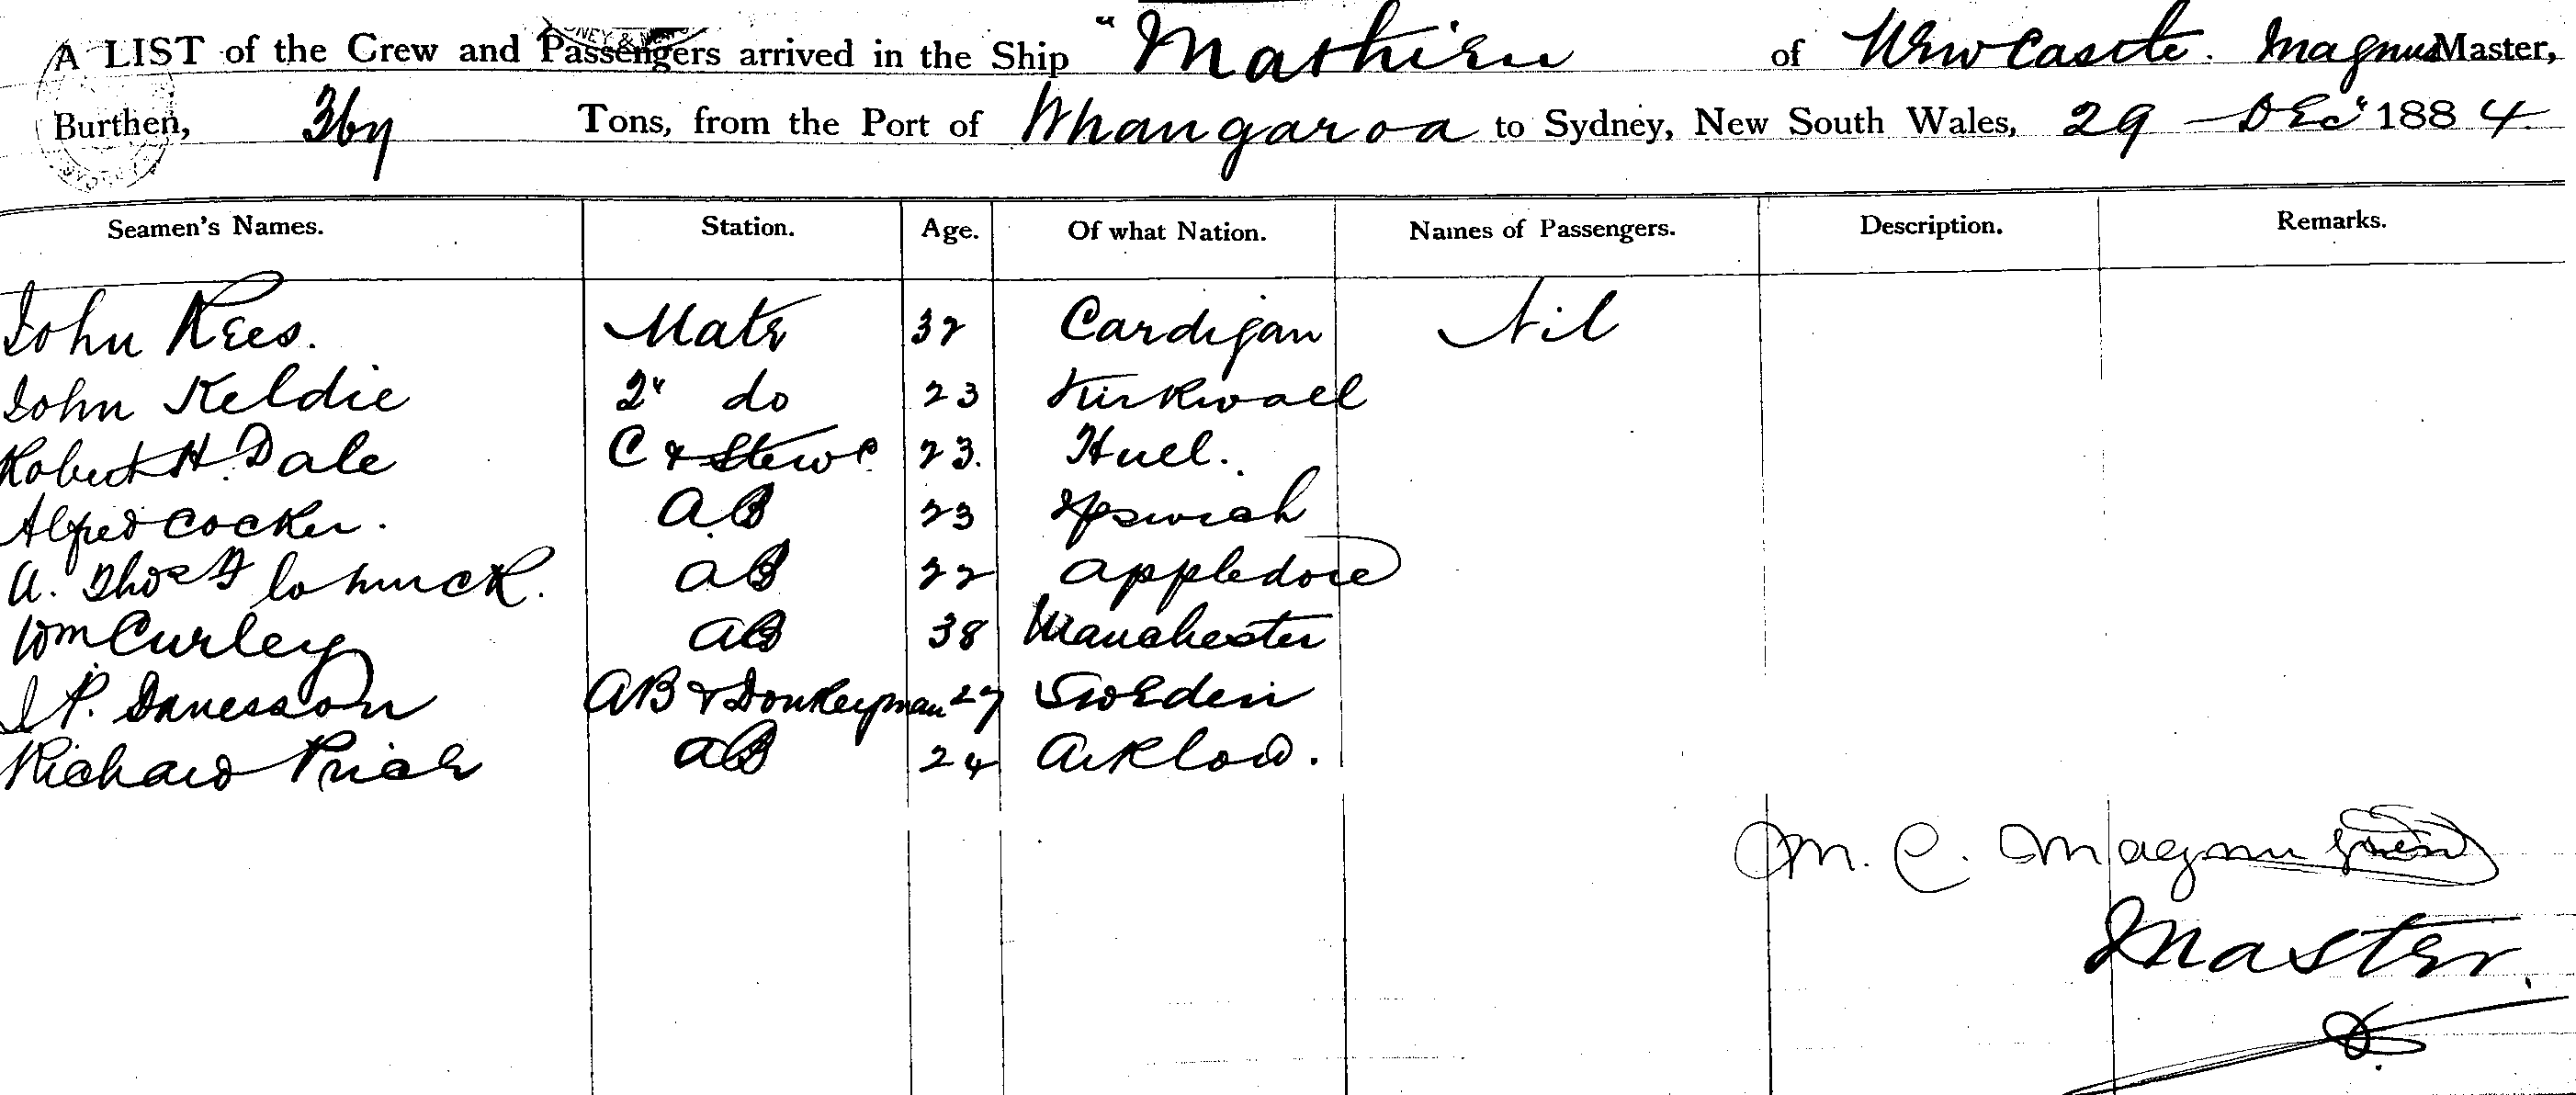 A LIST of the Crew and Passengers arrived in the Ship "Mathieu of Newcastle. Magnus Master,
Burthen, 367 Tons, from the Port of Whangaroa to Sydney, New South Wales, 29 Decr 1884
Seamen's Names. Station. Age. Of what Nation. Names of Passengers. Description. Remarks.
John Rees. Mate 32 Cardigan Nil
John Keldie 2" do 23 Kirkwall
Robert H. Dale C & Stewd 23. Hull.
Alfred Cocker. AB 23 Ipswich
A. Thos AB 22 Appledore
Wm Curley AB 38 Manchester
J P. Danesson AB & Donkeyman 27 Sweden
Richard Price AB 24 Arklow.
M. C. Magnussen
Master.